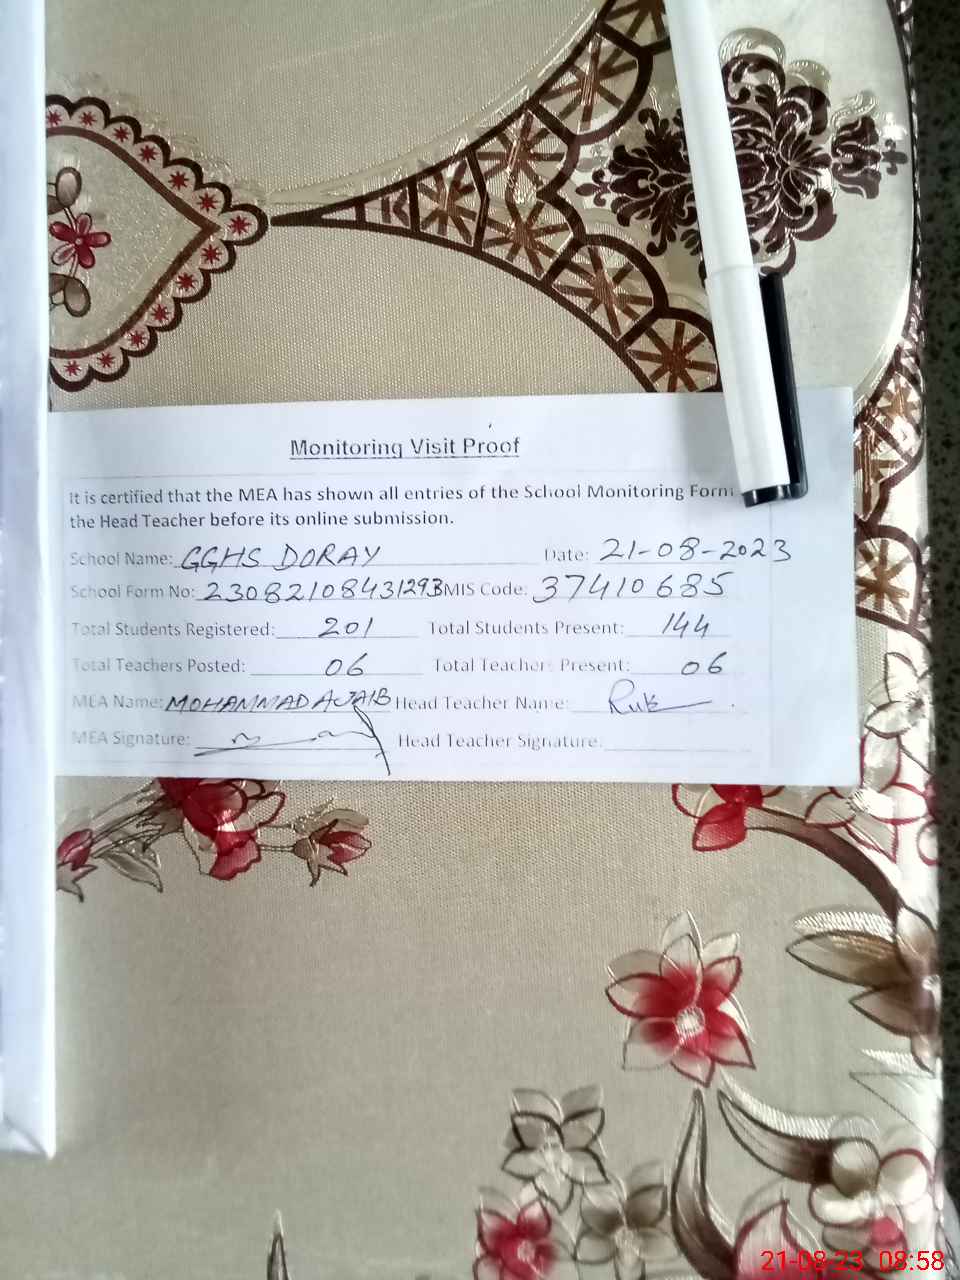 Monitoring Visit Proof
It is certified that the MEA has shown all entries of the School Monitoring Form
the Head Teacher before its online submission.
School Name: GGHS DORAY Date: 21-08-2023
School Form No: 23082108431293 MIS Code: 37410685
Total Students Registered: 201 Total Students Present: 144
Total Teachers Posted: 06 Total Teachers Present: 06
MEA Name: MOHAMMAD AJAIB Head Teacher Name:
MEA Signature: Head Teacher Signature:
21-08-23 08:58